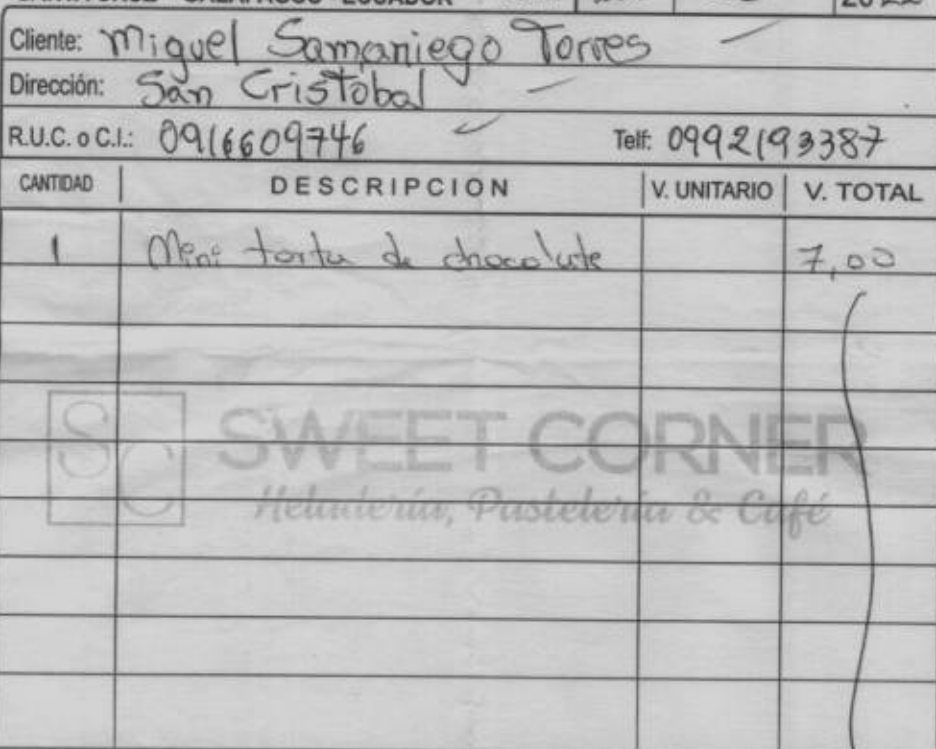 SANTA CRUZ - GALAPAGOS - ECUADOR
Cliente: Miguel Samaniego Torres
Dirección: San Cristobal
R.U.C. o C.I.: 0916609746 Telf: 0992193387
CANTIDAD DESCRIPCION V. UNITARIO V. TOTAL
1 Mini torta de chocolate 7,00
SC SWEET CORNER
Heladería, Pastelería & Café